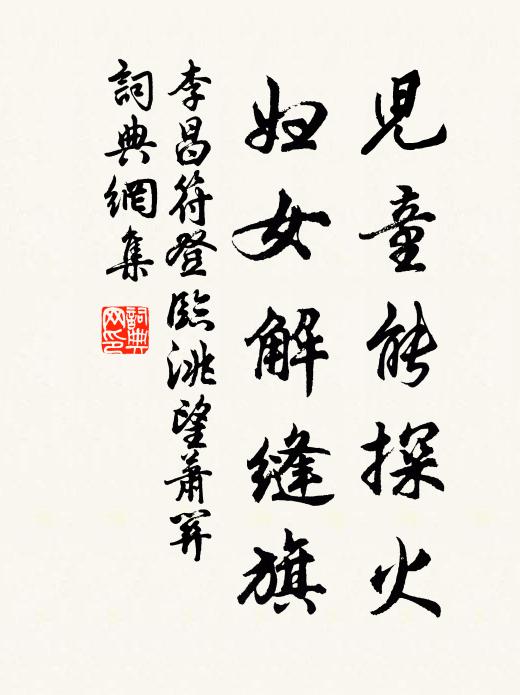 兒童能探火
婦女解縫旗
李昌符登臨洮望蕭關
詞典網集
詞典
网印